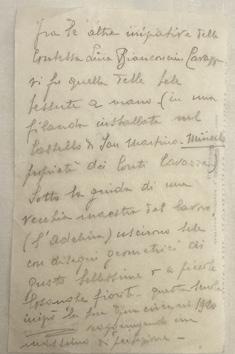 fra le altre iniziative della
Contessa Lina Bianconcini Cavazza
vi fu quella delle tele
tessute a mano (in una
filanda installata nel
Castello di San Martino
proprietà dei Conti Cavazza
Sotto la guida di una
vecchia maestra del lavoro
(l'Adelina) uscirono tele
con disegni geometrici di
gusto bellissimo o a piccole
fiorite. questa
iniziò la sua 1920
raggiungendo un
massimo di perfezione -